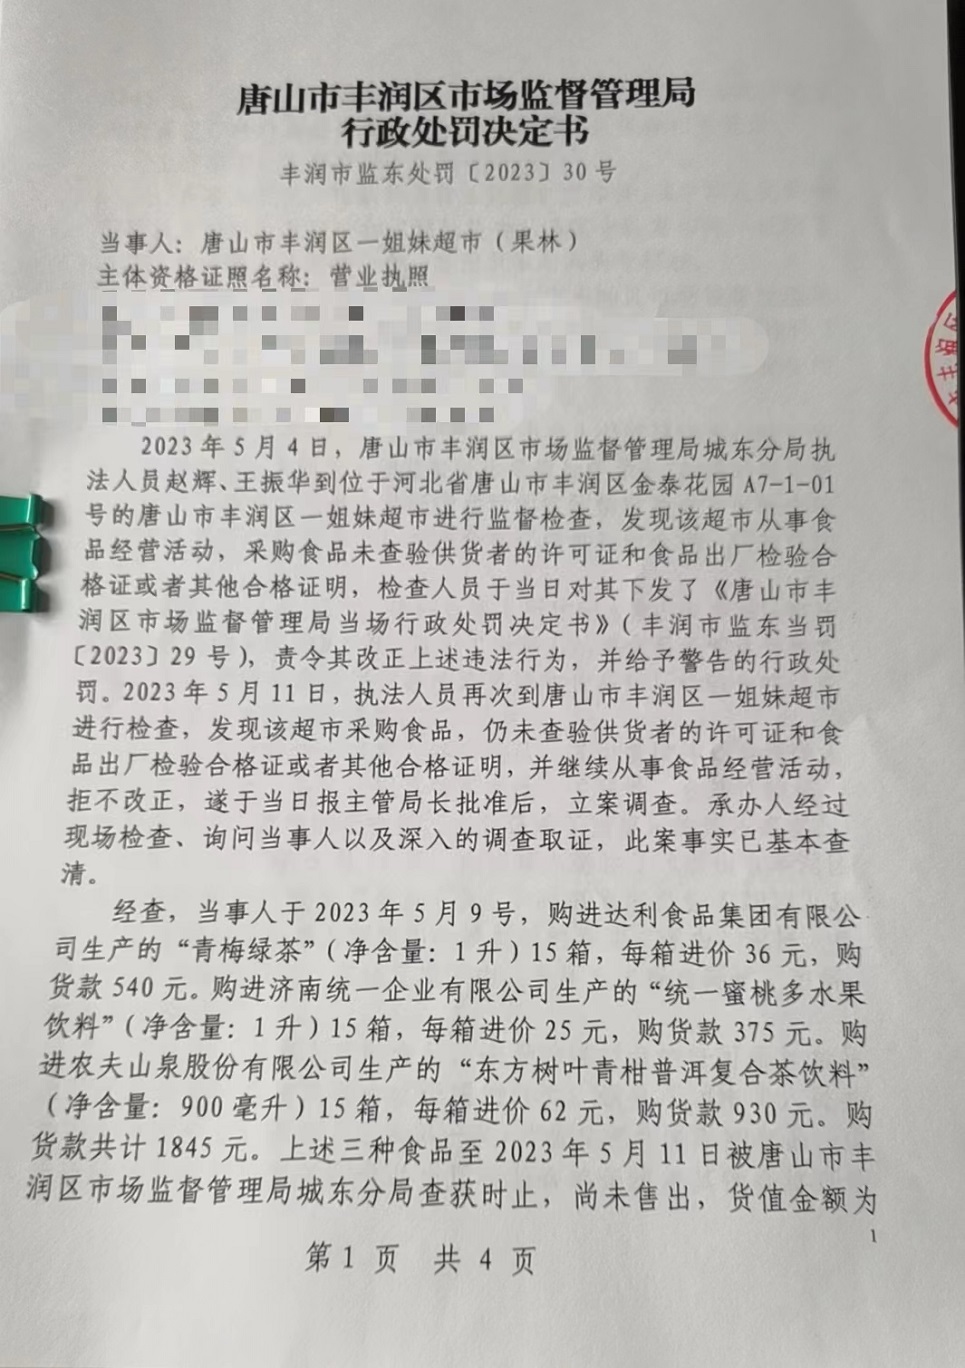 唐山市丰润区市场监督管理局
行政处罚决定书
丰润市监东处罚〔2023〕30号
当事人：唐山市丰润区一姐妹超市（果林）
主体资格证照名称：营业执照
2023年5月4日，唐山市丰润区市场监督管理局城东分局执
法人员赵辉、王振华到位于河北省唐山市丰润区金泰花园A7-1-01
号的唐山市丰润区一姐妹超市进行监督检查，发现该超市从事食
品经营活动，采购食品未查验供货者的许可证和食品出厂检验合
格证或者其他合格证明，检查人员于当日对其下发了《唐山市丰
润区市场监督管理局当场行政处罚决定书》（丰润市监东当罚
〔2023〕29号），责令其改正上述违法行为，并给予警告的行政处
罚。2023年5月11日，执法人员再次到唐山市丰润区一姐妹超市
进行检查，发现该超市采购食品，仍未查验供货者的许可证和食
品出厂检验合格证或者其他合格证明，并继续从事食品经营活动，
拒不改正，遂于当日报主管局长批准后，立案调查。承办人经过
现场检查、询问当事人以及深入的调查取证，此案事实已基本查
清。
经查，当事人于2023年5月9号，购进达利食品集团有限公
司生产的“青梅绿茶”（净含量：1升）15箱，每箱进价36元，购
货款540元。购进济南统一企业有限公司生产的“统一蜜桃多水果
饮料”（净含量：1升）15箱，每箱进价25元，购货款375元。购
进农夫山泉股份有限公司生产的“东方树叶青柑普洱复合茶饮料”
（净含量：900毫升）15箱，每箱进价62元，购货款930元。购
货款共计1845元。上述三种食品至2023年5月11日被唐山市丰
润区市场监督管理局城东分局查获时止，尚未售出，货值金额为
1
第1页 共4页